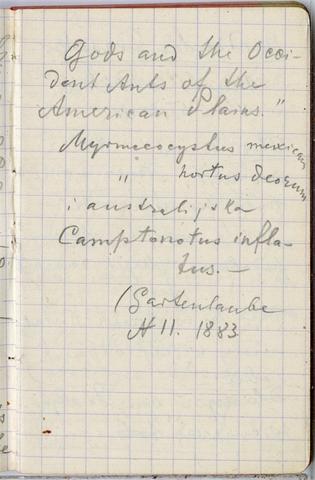 Gods and the Occi-
dent Ants of the
American Plains."
Myrmecocystus mexican
" hortus deorum
i australijska
Camptonotus infla-
tus. —
(Gartenlaube
N 11. 1883